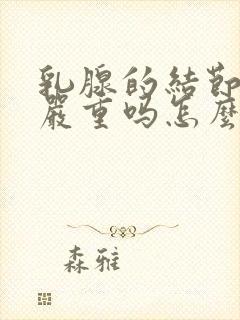 乳腺的結節
嚴重嗎怎麼
森雅